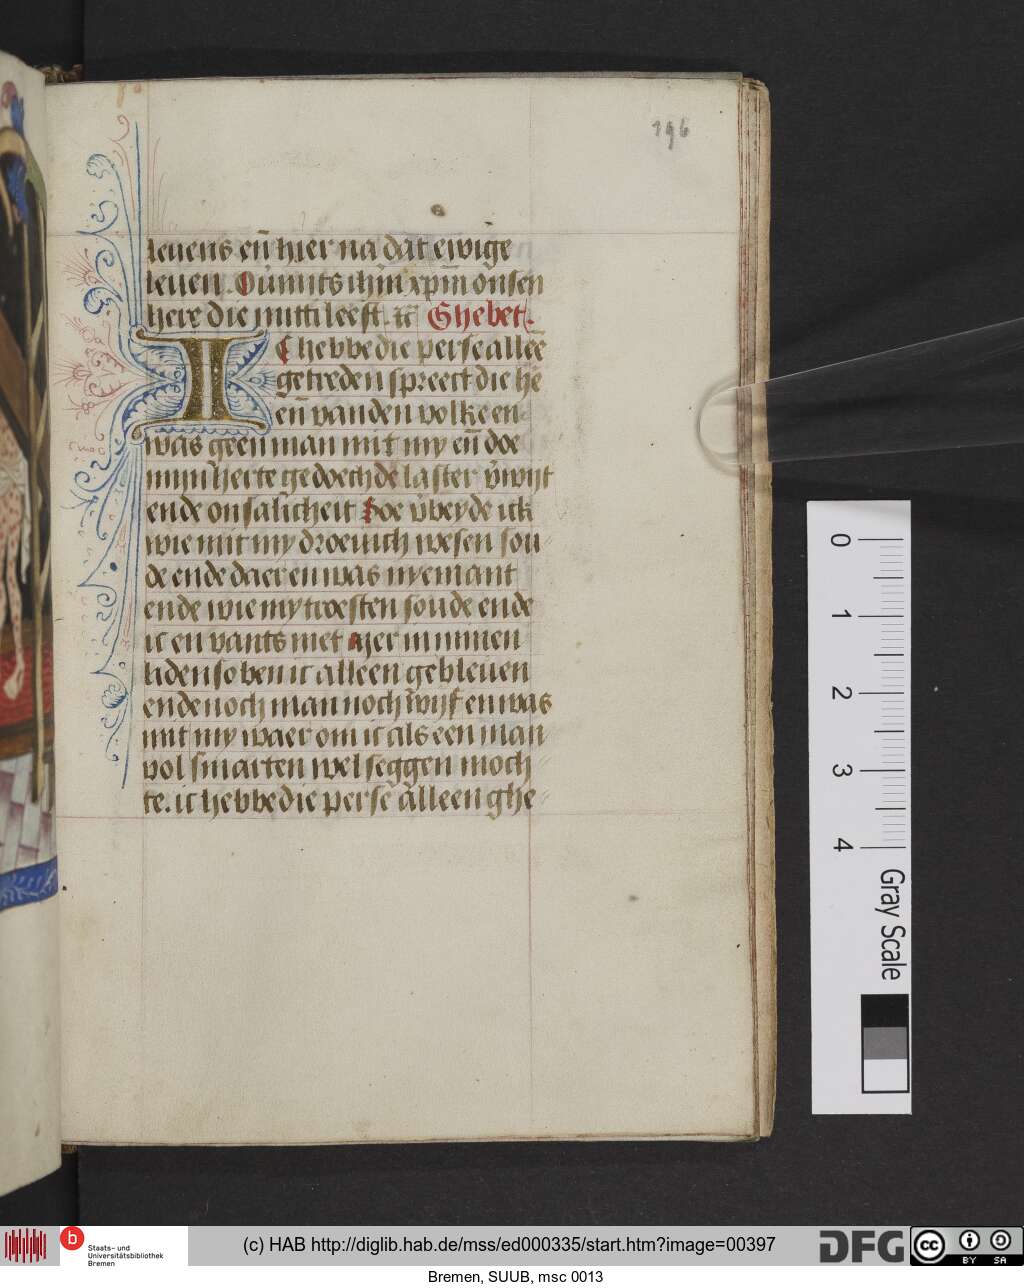 196
leuens en̄ hier na dat ewige
leuen. Oūmits ihm̄ xpm̄ onsen
here die mitti leeft. ꝛc̄ Ghebet.
IC hebbe die perse alleē
getreden spreect die hē
en̄ vanden volke en
was geen man mit my en̄ doe
mijn herte gedoech de laster v̄wijt
ende onsalicheit Doe v̄beyde ick
wie mit my droeuich wesen sou
de ende daer en was nyemant
ende wie my troesten soude ende
ic en vants niet Mer in minen
liden so ben ic alleen gebleuen
ende noch man noch wijf en was
mit my waer om ic als een man
vol smarten wel seggen moch
te. ic hebbe die perse alleen ghe
0
1
2
3
4
Gray Scale
b
Staats- und
Universitätsbibliothek
Bremen
(c) HAB http://diglib.hab.de/mss/ed000335/start.htm?image=00397
DFG
cc
BY SA
Bremen, SUUB, msc 0013